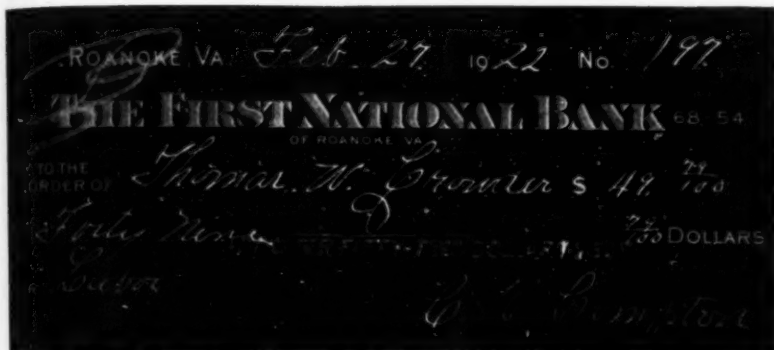 ROANOKE, VA. Feb. 27 1922 No. 197
THE FIRST NATIONAL BANK 68-54
OF ROANOKE VA.
TO THE ORDER OF Thomas W. Crowder $ 49 79/100
Forty Nine 79/100 DOLLARS
Labor